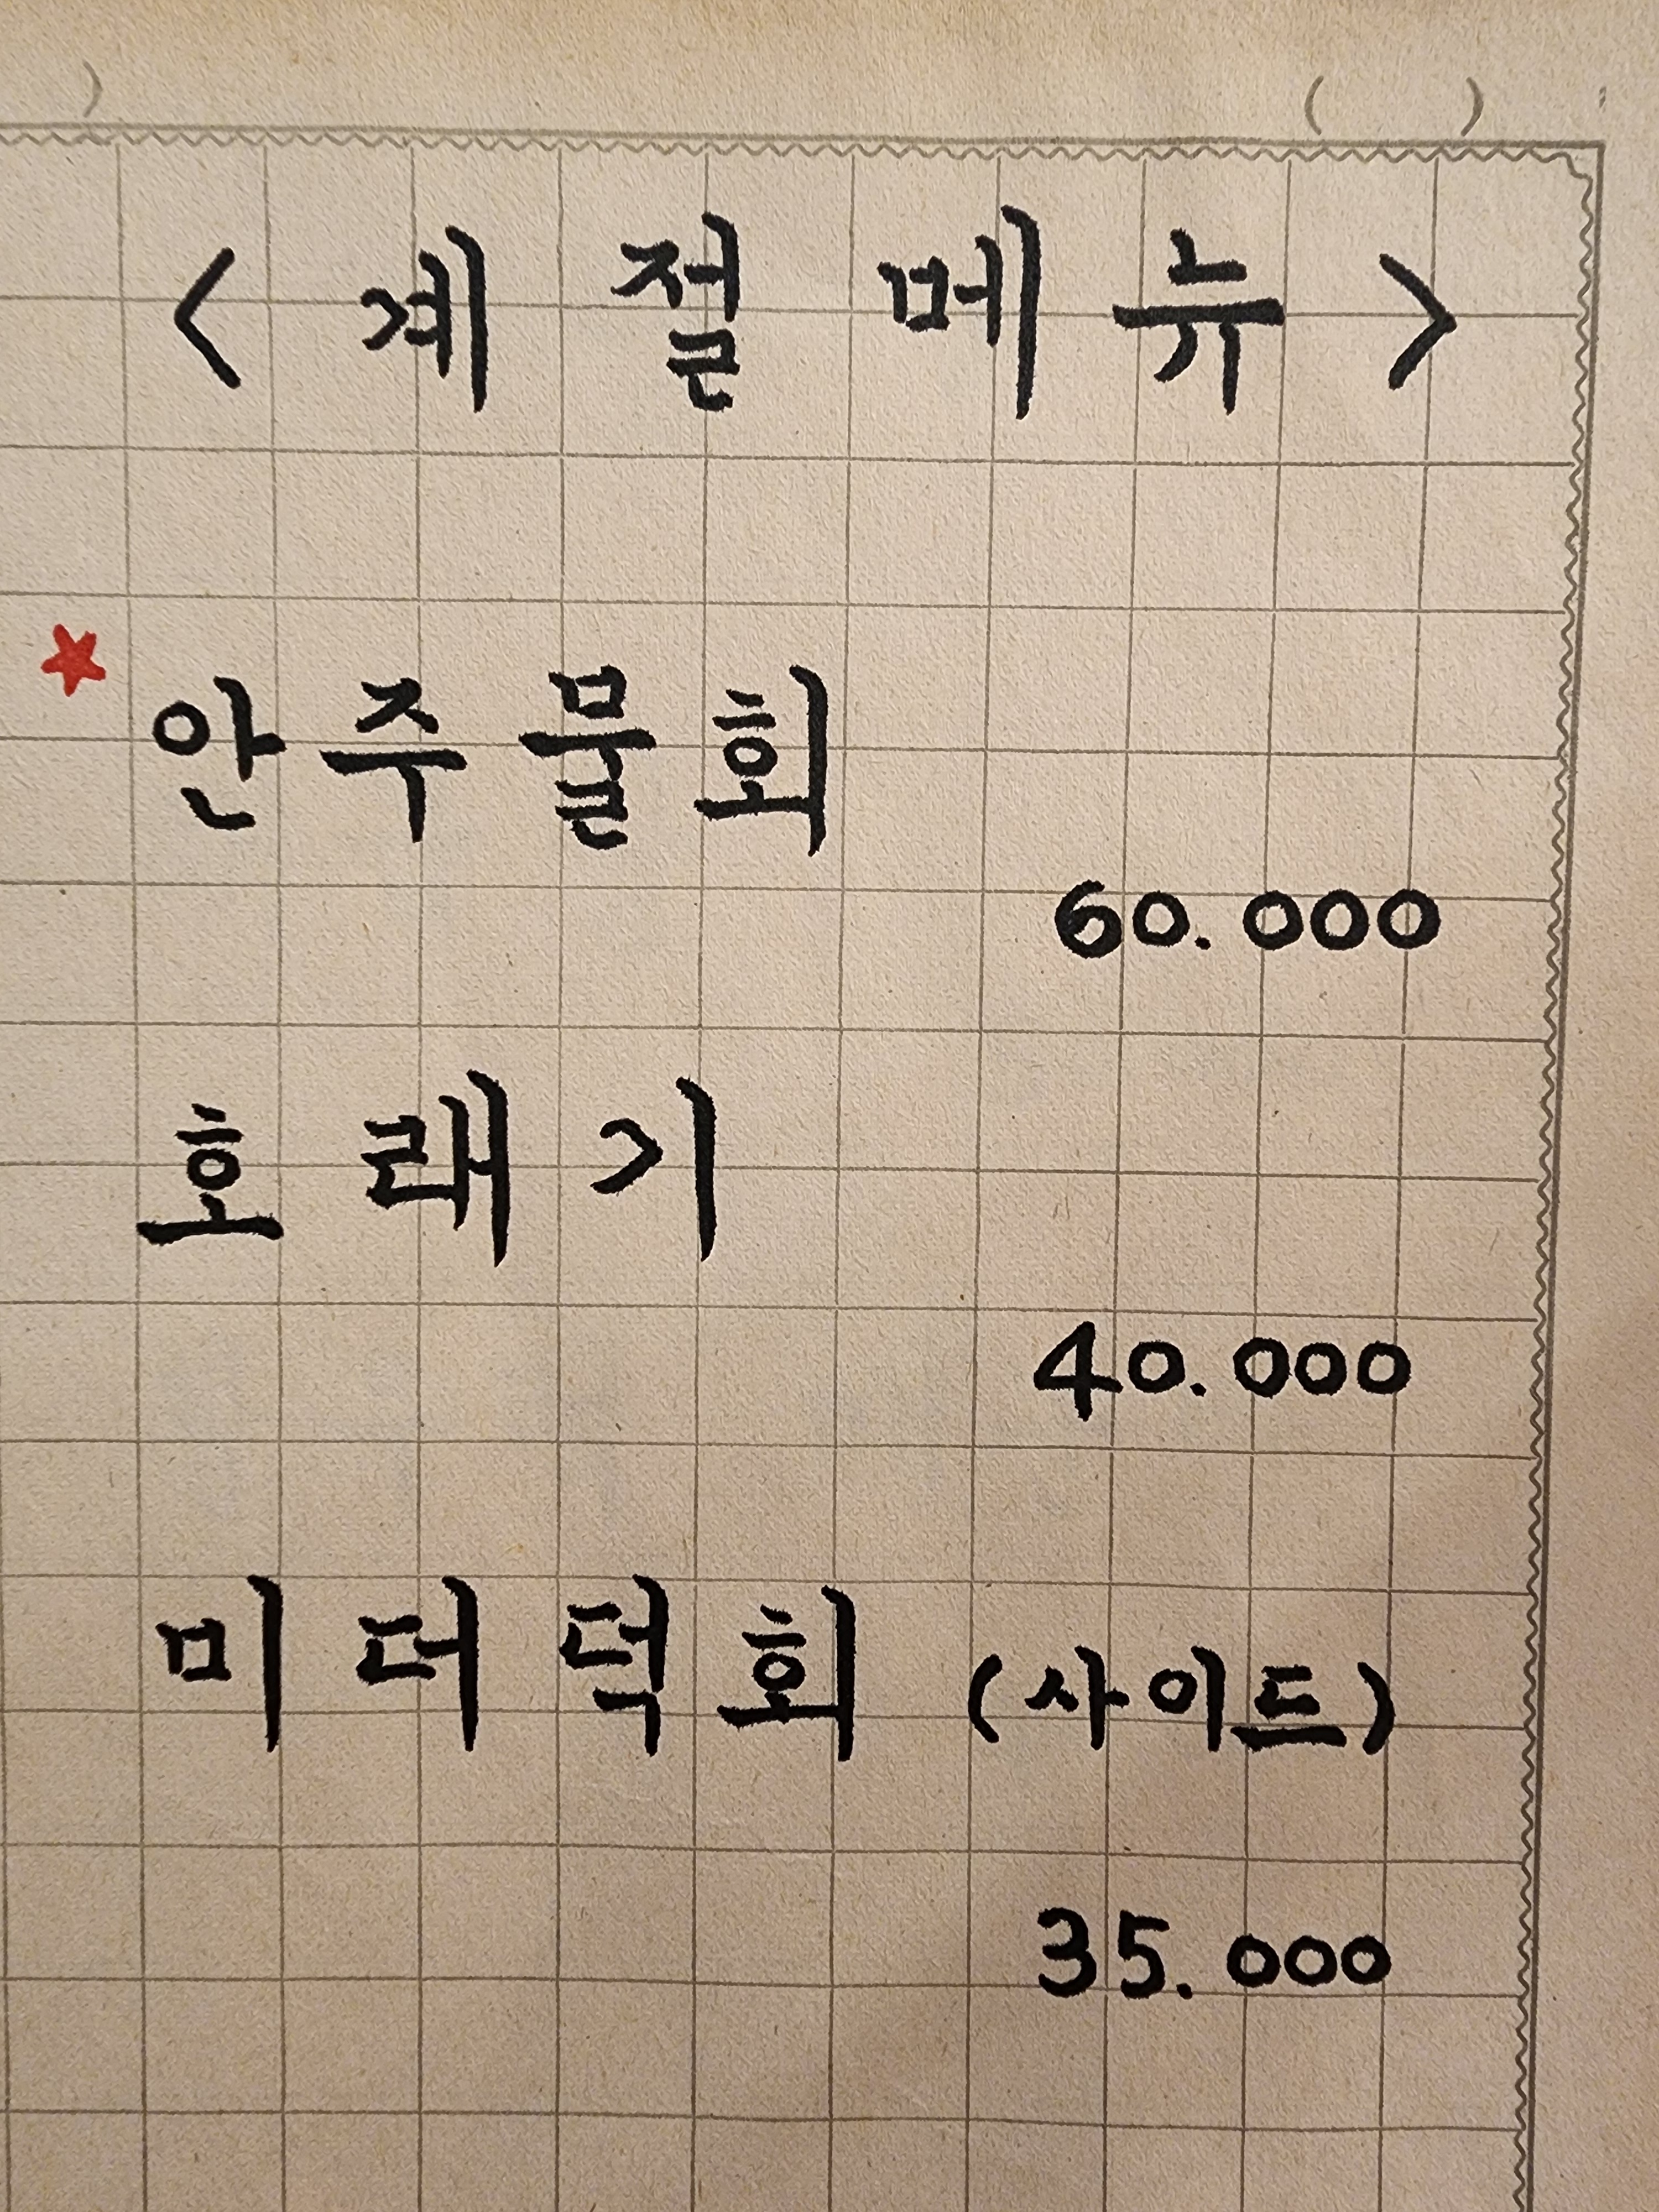 ( )
< 계절메뉴 >
★ 안주물회
60.000
호래기
40.000
미더덕회 (사이드)
35.000